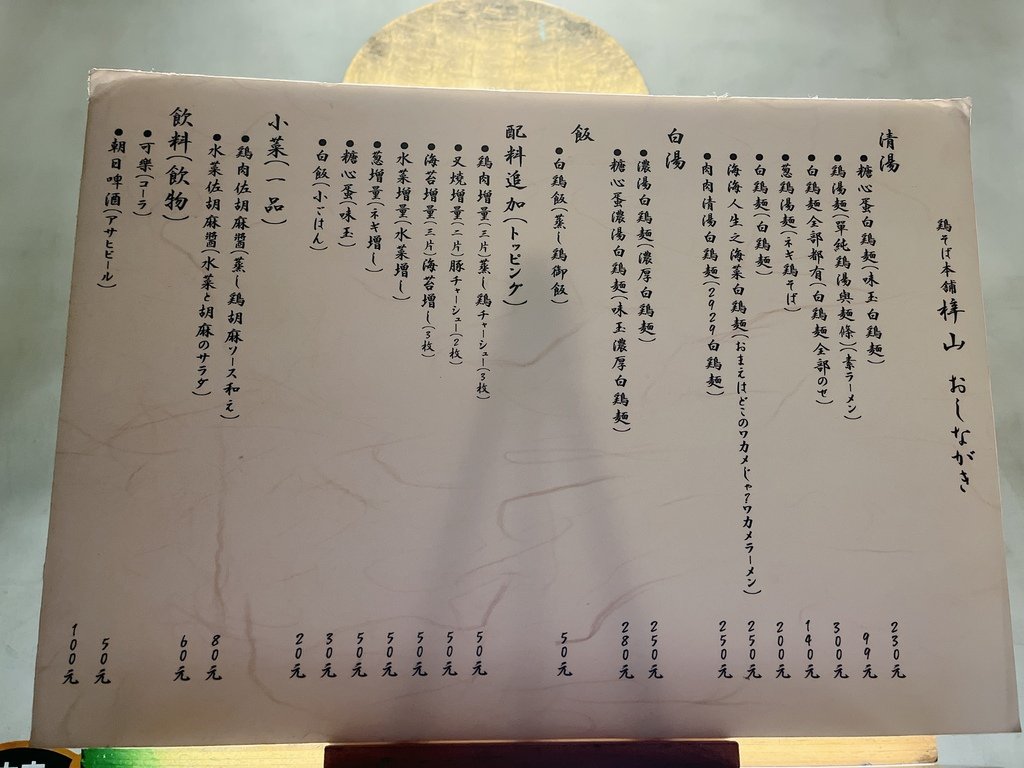 鶏そば本舗 梓山 おしながき
清湯
●糖心蛋白鶏麺(味玉白鶏麺) 230元
●鶏湯麺(單純鶏湯與麺條)(素ラーメン) 99元
●白鶏麺全部都有(白鶏麺全部のせ) 300元
●葱鶏湯麺(ネギ鶏そば) 140元
●白鶏麺(白鶏麺) 200元
●海海人生之海菜白鶏麺(おまえはどこのワカメじゃ?ワカメラーメン) 250元
●肉肉清湯白鶏麺(2929白鶏麺) 250元
白湯
●濃湯白鶏麺(濃厚白鶏麺) 250元
●糖心蛋濃湯白鶏麺(味玉濃厚白鶏麺) 280元
飯
●白鶏飯(蒸し鶏御飯) 50元
配料追加(トッピング)
●鶏肉増量(三片)蒸し鶏チャーシュー(3枚) 50元
●叉焼増量(二片)豚チャーシュー(2枚) 50元
●海苔増量(三片)海苔増し(3枚) 50元
●水菜増量(水菜増し) 50元
●葱増量(ネギ増し) 50元
●糖心蛋(味玉) 30元
●白飯(小ごはん) 20元
小菜(一品)
●鶏肉佐胡麻醬(蒸し鶏胡麻ソース和え) 80元
●水菜佐胡麻醬(水菜と胡麻のサラダ) 60元
飲料(飲物)
●可樂(コーラ) 50元
●朝日啤酒(アサヒビール) 100元